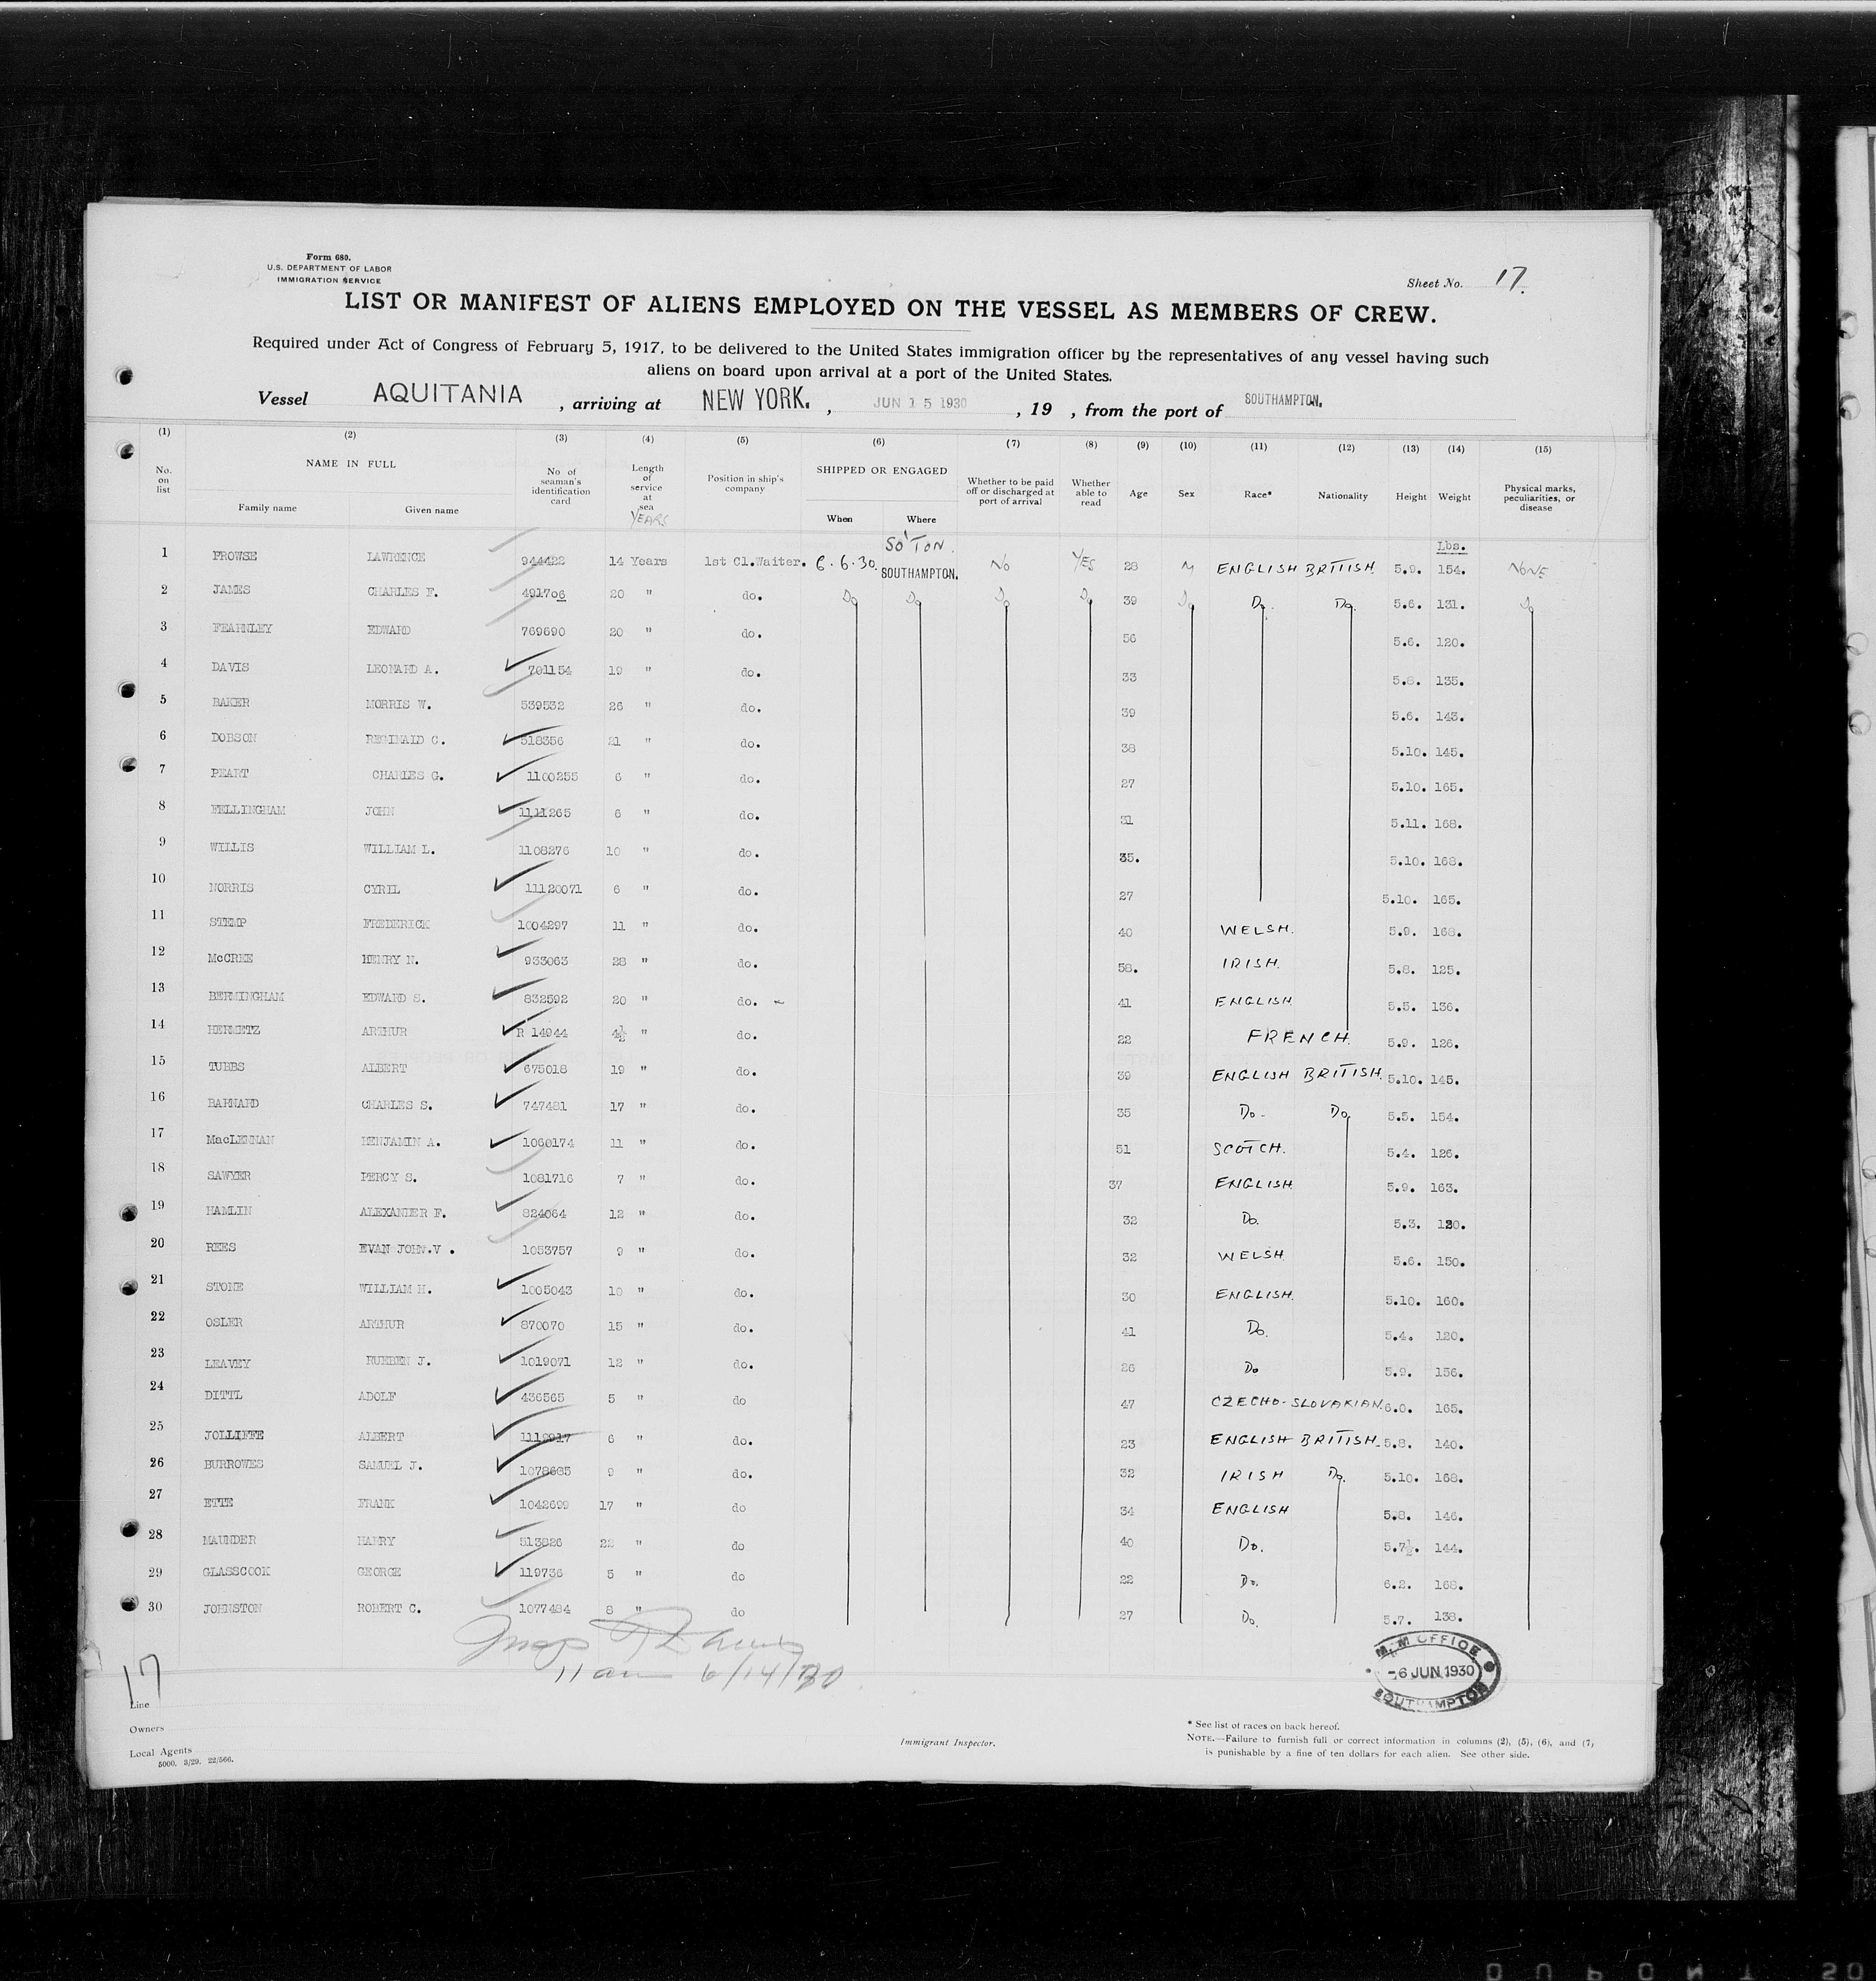 Form 680.
U.S. DEPARTMENT OF LABOR
IMMIGRATION SERVICE
Sheet No. 17.
LIST OR MANIFEST OF ALIENS EMPLOYED ON THE VESSEL AS MEMBERS OF CREW.
Required under Act of Congress of February 5, 1917, to be delivered to the United States immigration officer by the representatives of any vessel having such
aliens on board upon arrival at a port of the United States.
Vessel AQUITANIA , arriving at NEW YORK. , JUN 15 1930 , 19 , from the port of SOUTHAMPTON.
(1) (2) (3) (4) (5) (6) (7) (8) (9) (10) (11) (12) (13) (14) (15)
No. on list NAME IN FULL Family name Given name No of seaman's identification card Length of service at sea YEARS Position in ship's company SHIPPED OR ENGAGED When Where Whether to be paid off or discharged at port of arrival Whether able to read Age Sex Race* Nationality Height Weight Physical marks, peculiarities, or disease
SO'TON. Lbs.
1 PROWSE LAWRENCE 944422 14 Years 1st Cl.Waiter. 6.6.30. SOUTHAMPTON. NO YES 28 M ENGLISH BRITISH 5.9. 154. NONE
2 JAMES CHARLES F. 491706 20 " do. Do Do Do Do 39 Do Do. Do. 5.6. 131. Do
3 FEARNLEY EDWARD 769690 20 " do. 56 5.6. 120.
4 DAVIS LEONARD A. 701154 19 " do. 33 5.8. 135.
5 BAKER MORRIS W. 539532 26 " do. 39 5.6. 143.
6 DOBSON REGINALD C. 518356 21 " do. 38 5.10. 145.
7 PEART CHARLES G. 1100255 6 " do. 27 5.10. 165.
8 FELLINGHAM JOHN 1111265 6 " do. 31 5.11. 168.
9 WILLIS WILLIAM L. 1108276 10 " do. 35. 5.10. 168.
10 NORRIS CYRIL 11120071 6 " do. 27 5.10. 165.
11 STEMP FREDERICK 1004297 11 " do. 40 WELSH. 5.9. 168.
12 McCREE HENRY N. 933063 28 " do. 58. IRISH. 5.8. 125.
13 BERMINGHAM EDWARD S. 832592 20 " do. 41 ENGLISH 5.5. 136.
14 HERMETZ ARTHUR R 14944 4½ " do. 22 FRENCH. 5.9. 126.
15 TUBBS ALBERT 675018 19 " do. 39 ENGLISH BRITISH. 5.10. 145.
16 BARNARD CHARLES S. 747481 17 " do. 35 Do - Do 5.5. 154.
17 MacLENNAN BENJAMIN A. 1060174 11 " do. 51 SCOTCH. 5.4. 126.
18 SAWYER PERCY S. 1081716 7 " do. 37 ENGLISH 5.9. 163.
19 HAMLIN ALEXANDER F. 824064 12 " do. 32 Do. 5.3. 120.
20 REES EVAN JOHN.V . 1053757 9 " do. 32 WELSH 5.6. 150.
21 STONE WILLIAM H. 1005043 10 " do. 30 ENGLISH. 5.10. 160.
22 OSLER ARTHUR 870070 15 " do. 41 Do. 5.4. 120.
23 LEAVEY RUEBEN J. 1019071 12 " do. 26 Do 5.9. 156.
24 DITTL ADOLF 436565 5 " do 47 CZECHO-SLOVAKIAN. 6.0. 165.
25 JOLLIFFE ALBERT 6 " do. 23 ENGLISH BRITISH. 5.8. 140.
26 BURROWES SAMUEL J. 1078685 9 " do. 32 IRISH Do. 5.10. 168.
27 ETTE FRANK 1042699 17 " do 34 ENGLISH 5.8. 146.
28 MAUNDER HARRY 513826 22 " do 40 Do. 5.7½. 144.
29 GLASSCOOK GEORGE 119736 5 " do 22 Do. 6.2. 168.
30 JOHNSTON ROBERT C. 1077484 8 " do 27 Do. 5.7. 138.
11 am 6/14/30
17
M.M OFFICE
-6 JUN 1930
SOUTHAMPTON
Line
Owners
Local Agents
5000. 3/29. 22/566.
Immigrant Inspector.
* See list of races on back hereof.
NOTE.—Failure to furnish full or correct information in columns (2), (5), (6), and (7)
is punishable by a fine of ten dollars for each alien. See other side.